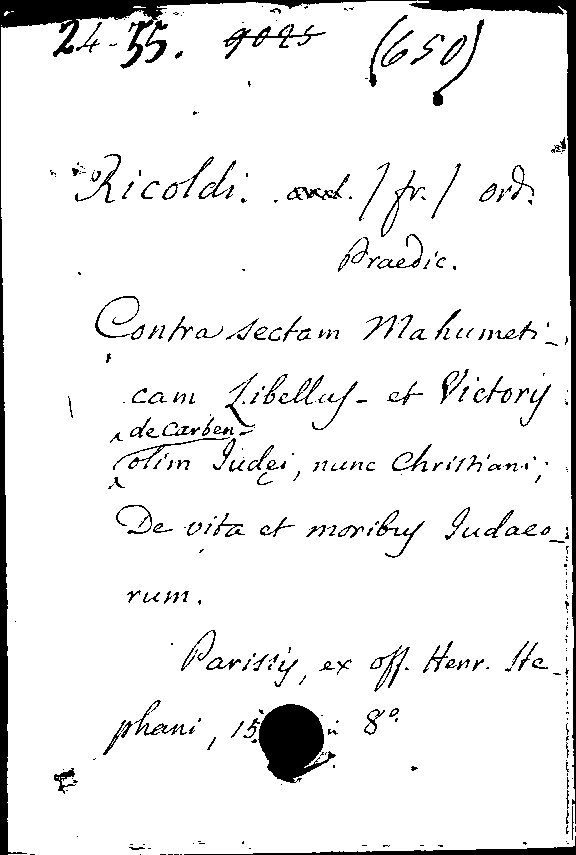 24-35. 9025 (650)
Ricoldi. /fr./ ord.
Praedic.
Contra sectam Mahumeti-
cam Libellus- et Victoris
de Carben-
olim Iudęi, nunc Christiani;
De vita et moribus Iudaeo-
rum.
Parisiis, ex off. Henr. Ste-
phani, 15 8°.